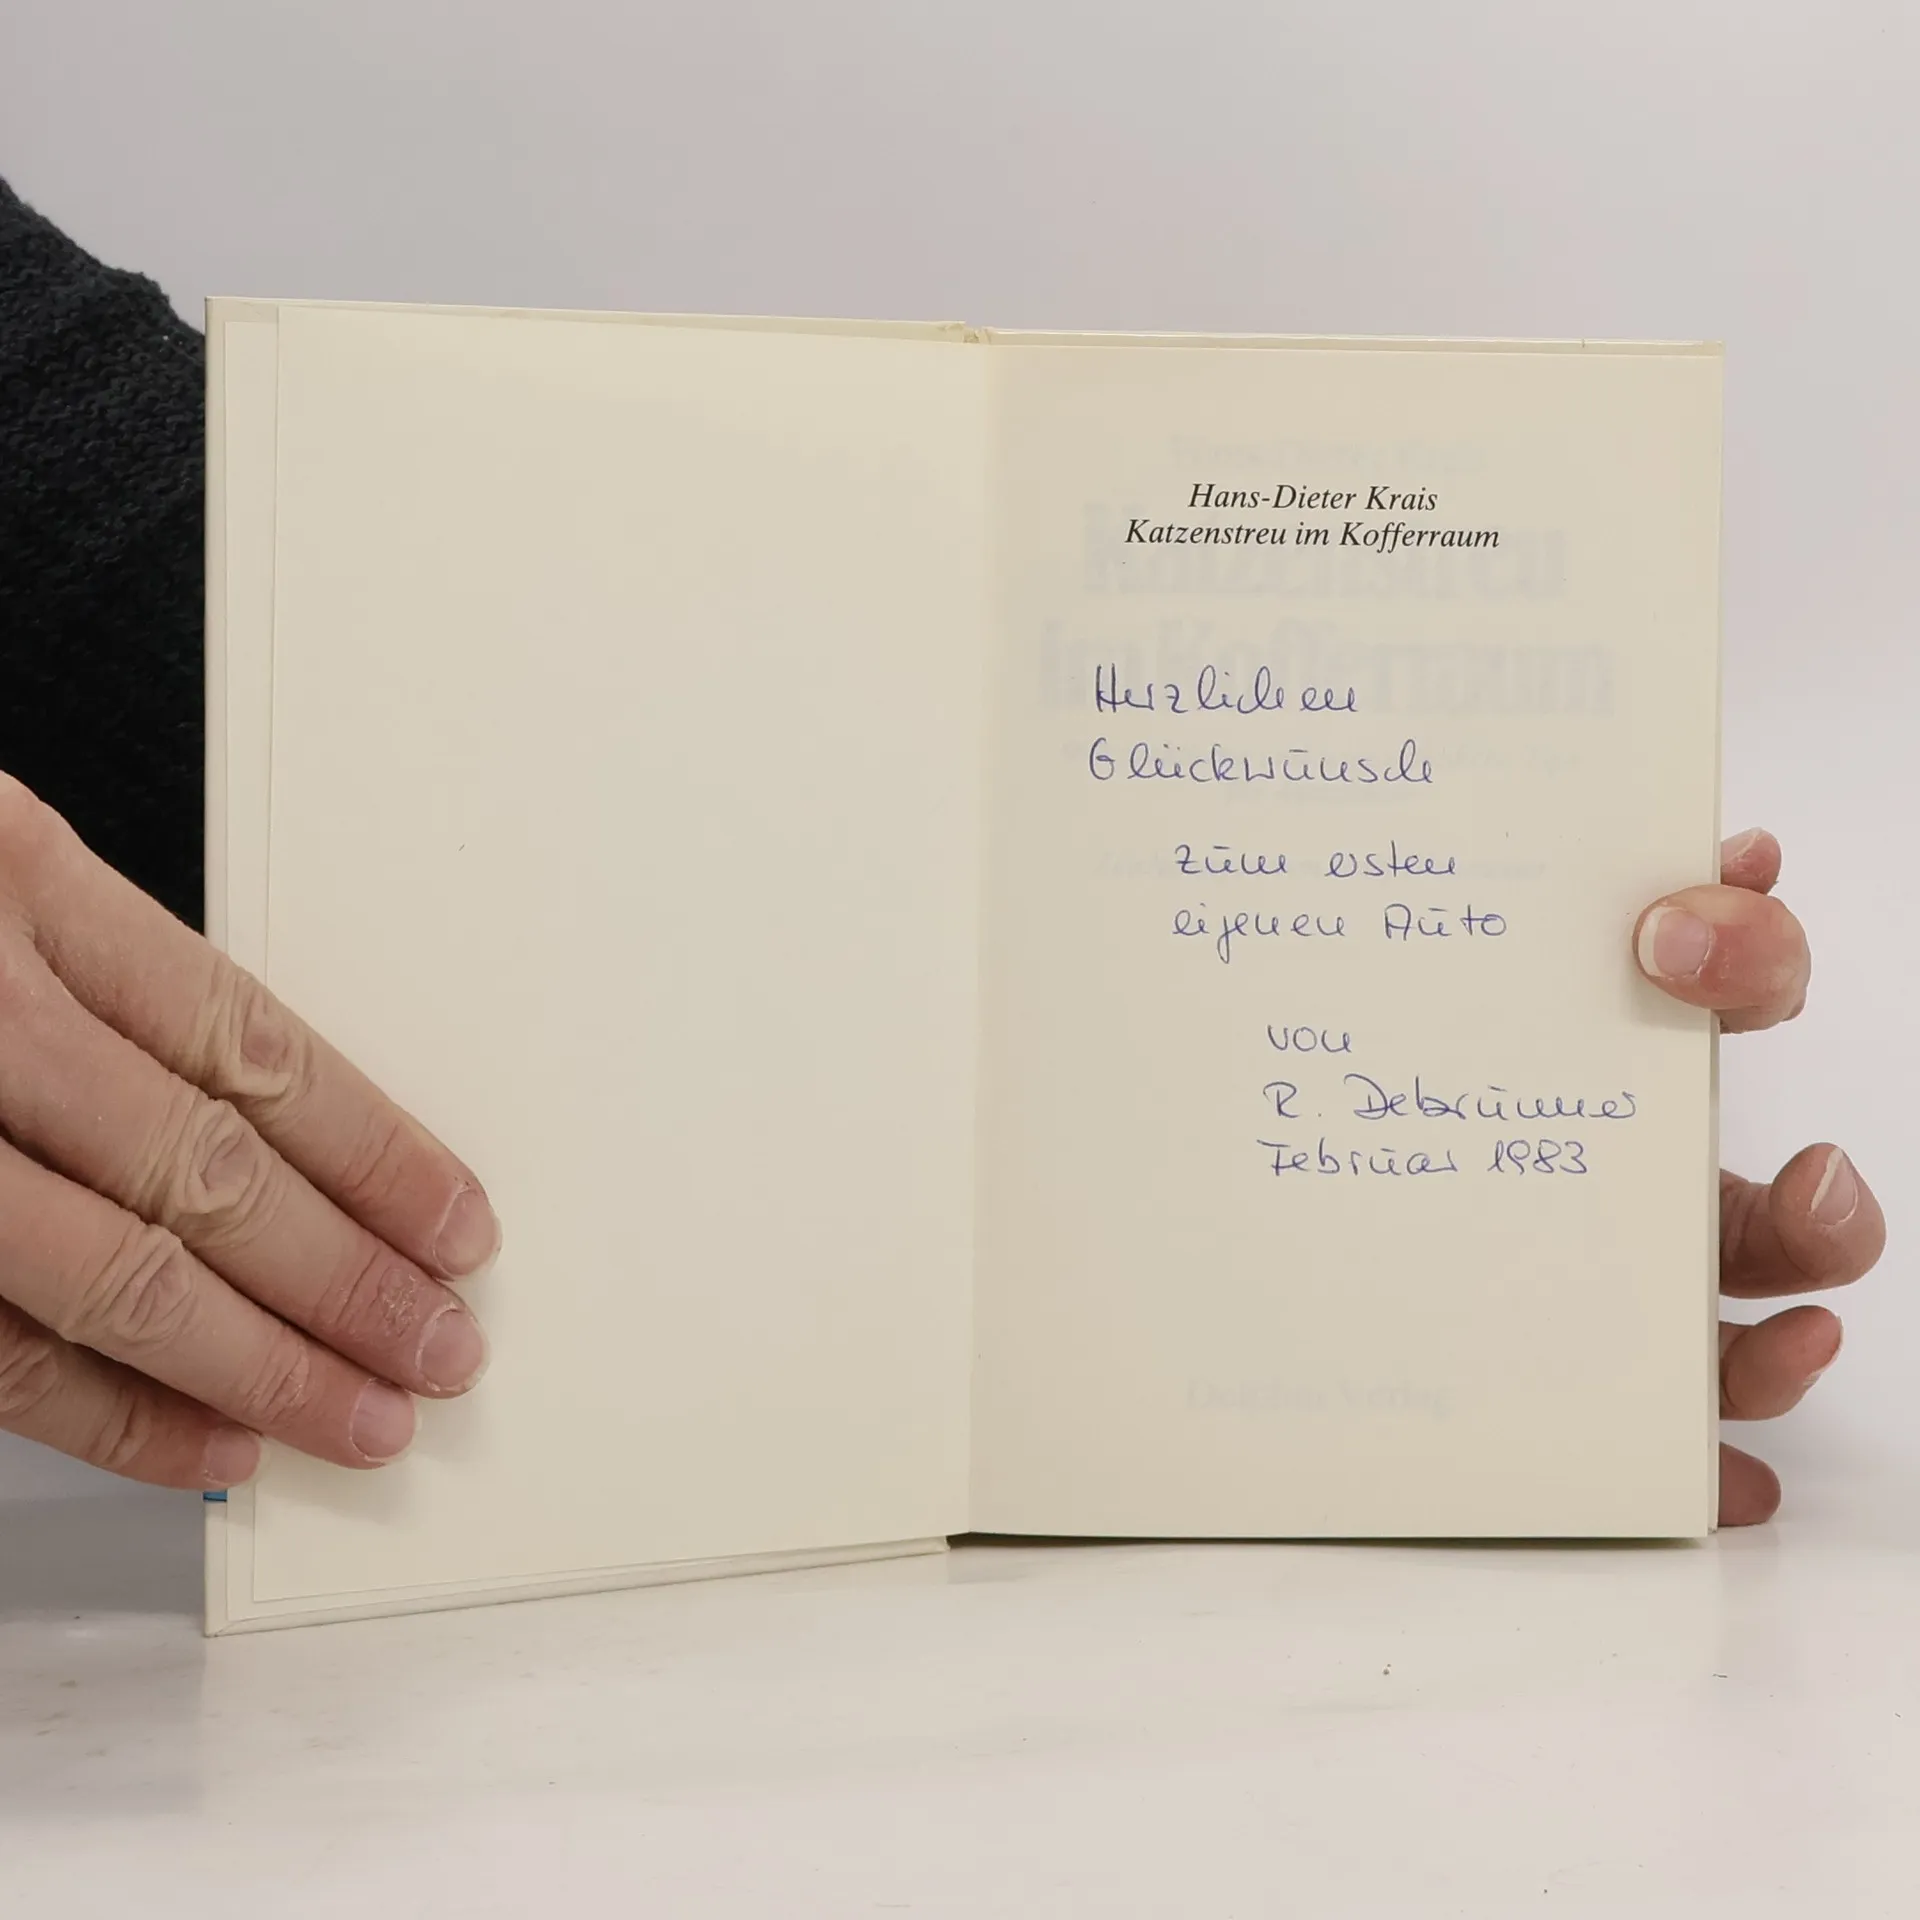 Hans-Dieter Krais
Katzenstreu im Kofferraum
Herzlichen
Glückwunsch
zum ersten
eigenen Auto
von
R. Debrunner
Februar 1983